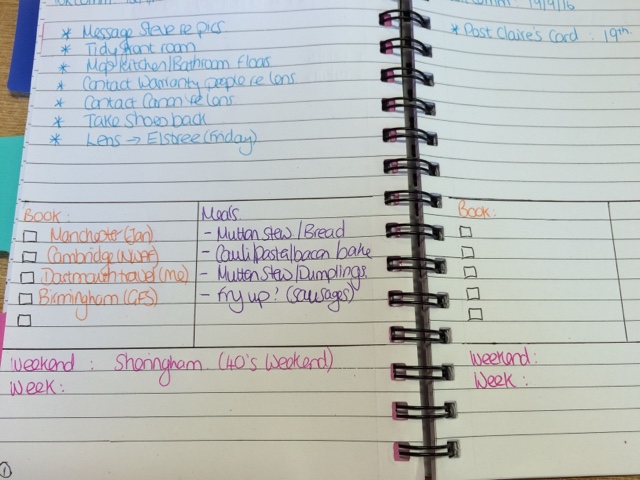 19/9/16
* Message Steve re pics
* Tidy front room
* Mop kitchen/Bathroom floors
* Contact Warranty people re lens
* Contact Canon re lens
* Take shoes back
* Lens → Elstree (Friday)
Book:
Manchester (Jan)
Cambridge (NWAF)
Dartmouth travel (me)
Birmingham (GFS)
Meals
- Mutton Stew / Bread
- Cauli/Pasta/bacon bake
- Mutton Stew/Dumplings
- Fry up! (sausages)
Weekend: Sheringham (40's Weekend)
Week:
1
* Post Claire's Card: 19th.
Book:
Weekend:
Week: